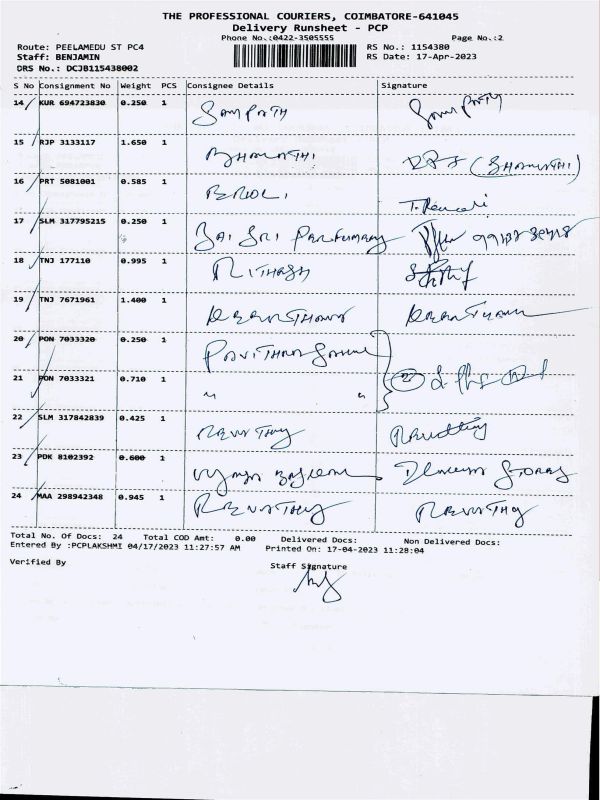 THE PROFESSIONAL COURIERS, COIMBATORE-641045
Delivery Runsheet - PCP
Phone No.:0422-3505555
Page No.:2
Route: PEELAMEDU ST PC4
RS No.: 1154380
Staff: BENJAMIN
RS Date: 17-Apr-2023
DRS No.: DCJB115438002
S No Consignment No Weight PCS Consignee Details Signature
14 KUR 694723830 0.250 1 SAMPATH
15 RJP 3133117 1.650 1 BHARATHI (BHARATHI)
16 PRT 5081001 0.585 1
17 SLM 317795215 0.250 1 SAI SRI
18 TNJ 177110 0.995 1
19 TNJ 7671961 1.400 1
20 PON 7033320 0.250 1
21 PON 7033321 0.710 1 " "
22 SLM 317842839 0.425 1 REVATHY
23 PDK 8102392 0.600 1 STORES
24 MAA 298942348 0.945 1 REVATHY REVATHY
Total No. Of Docs: 24 Total COD Amt: 0.00 Delivered Docs: Non Delivered Docs:
Entered By :PCPLAKSHMI 04/17/2023 11:27:57 AM Printed On: 17-04-2023 11:28:04
Verified By
Staff Signature